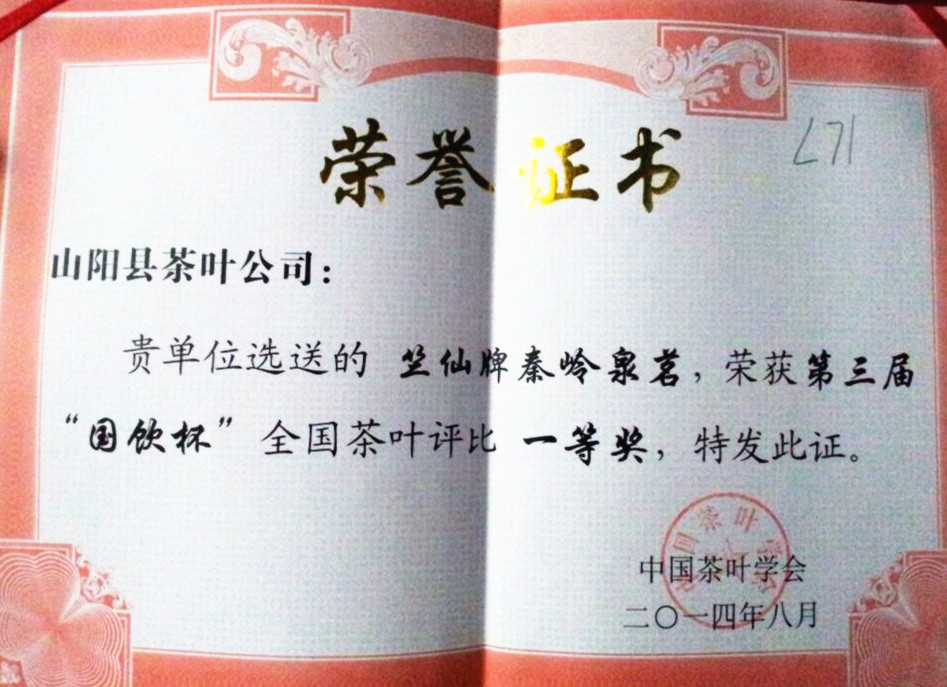 荣誉证书
171
山阳县茶叶公司：
贵单位选送的 竺仙牌秦岭泉茗，荣获第三届
“国饮杯”全国茶叶评比 一等奖，特发此证。
中国茶叶学会
二〇一四年八月